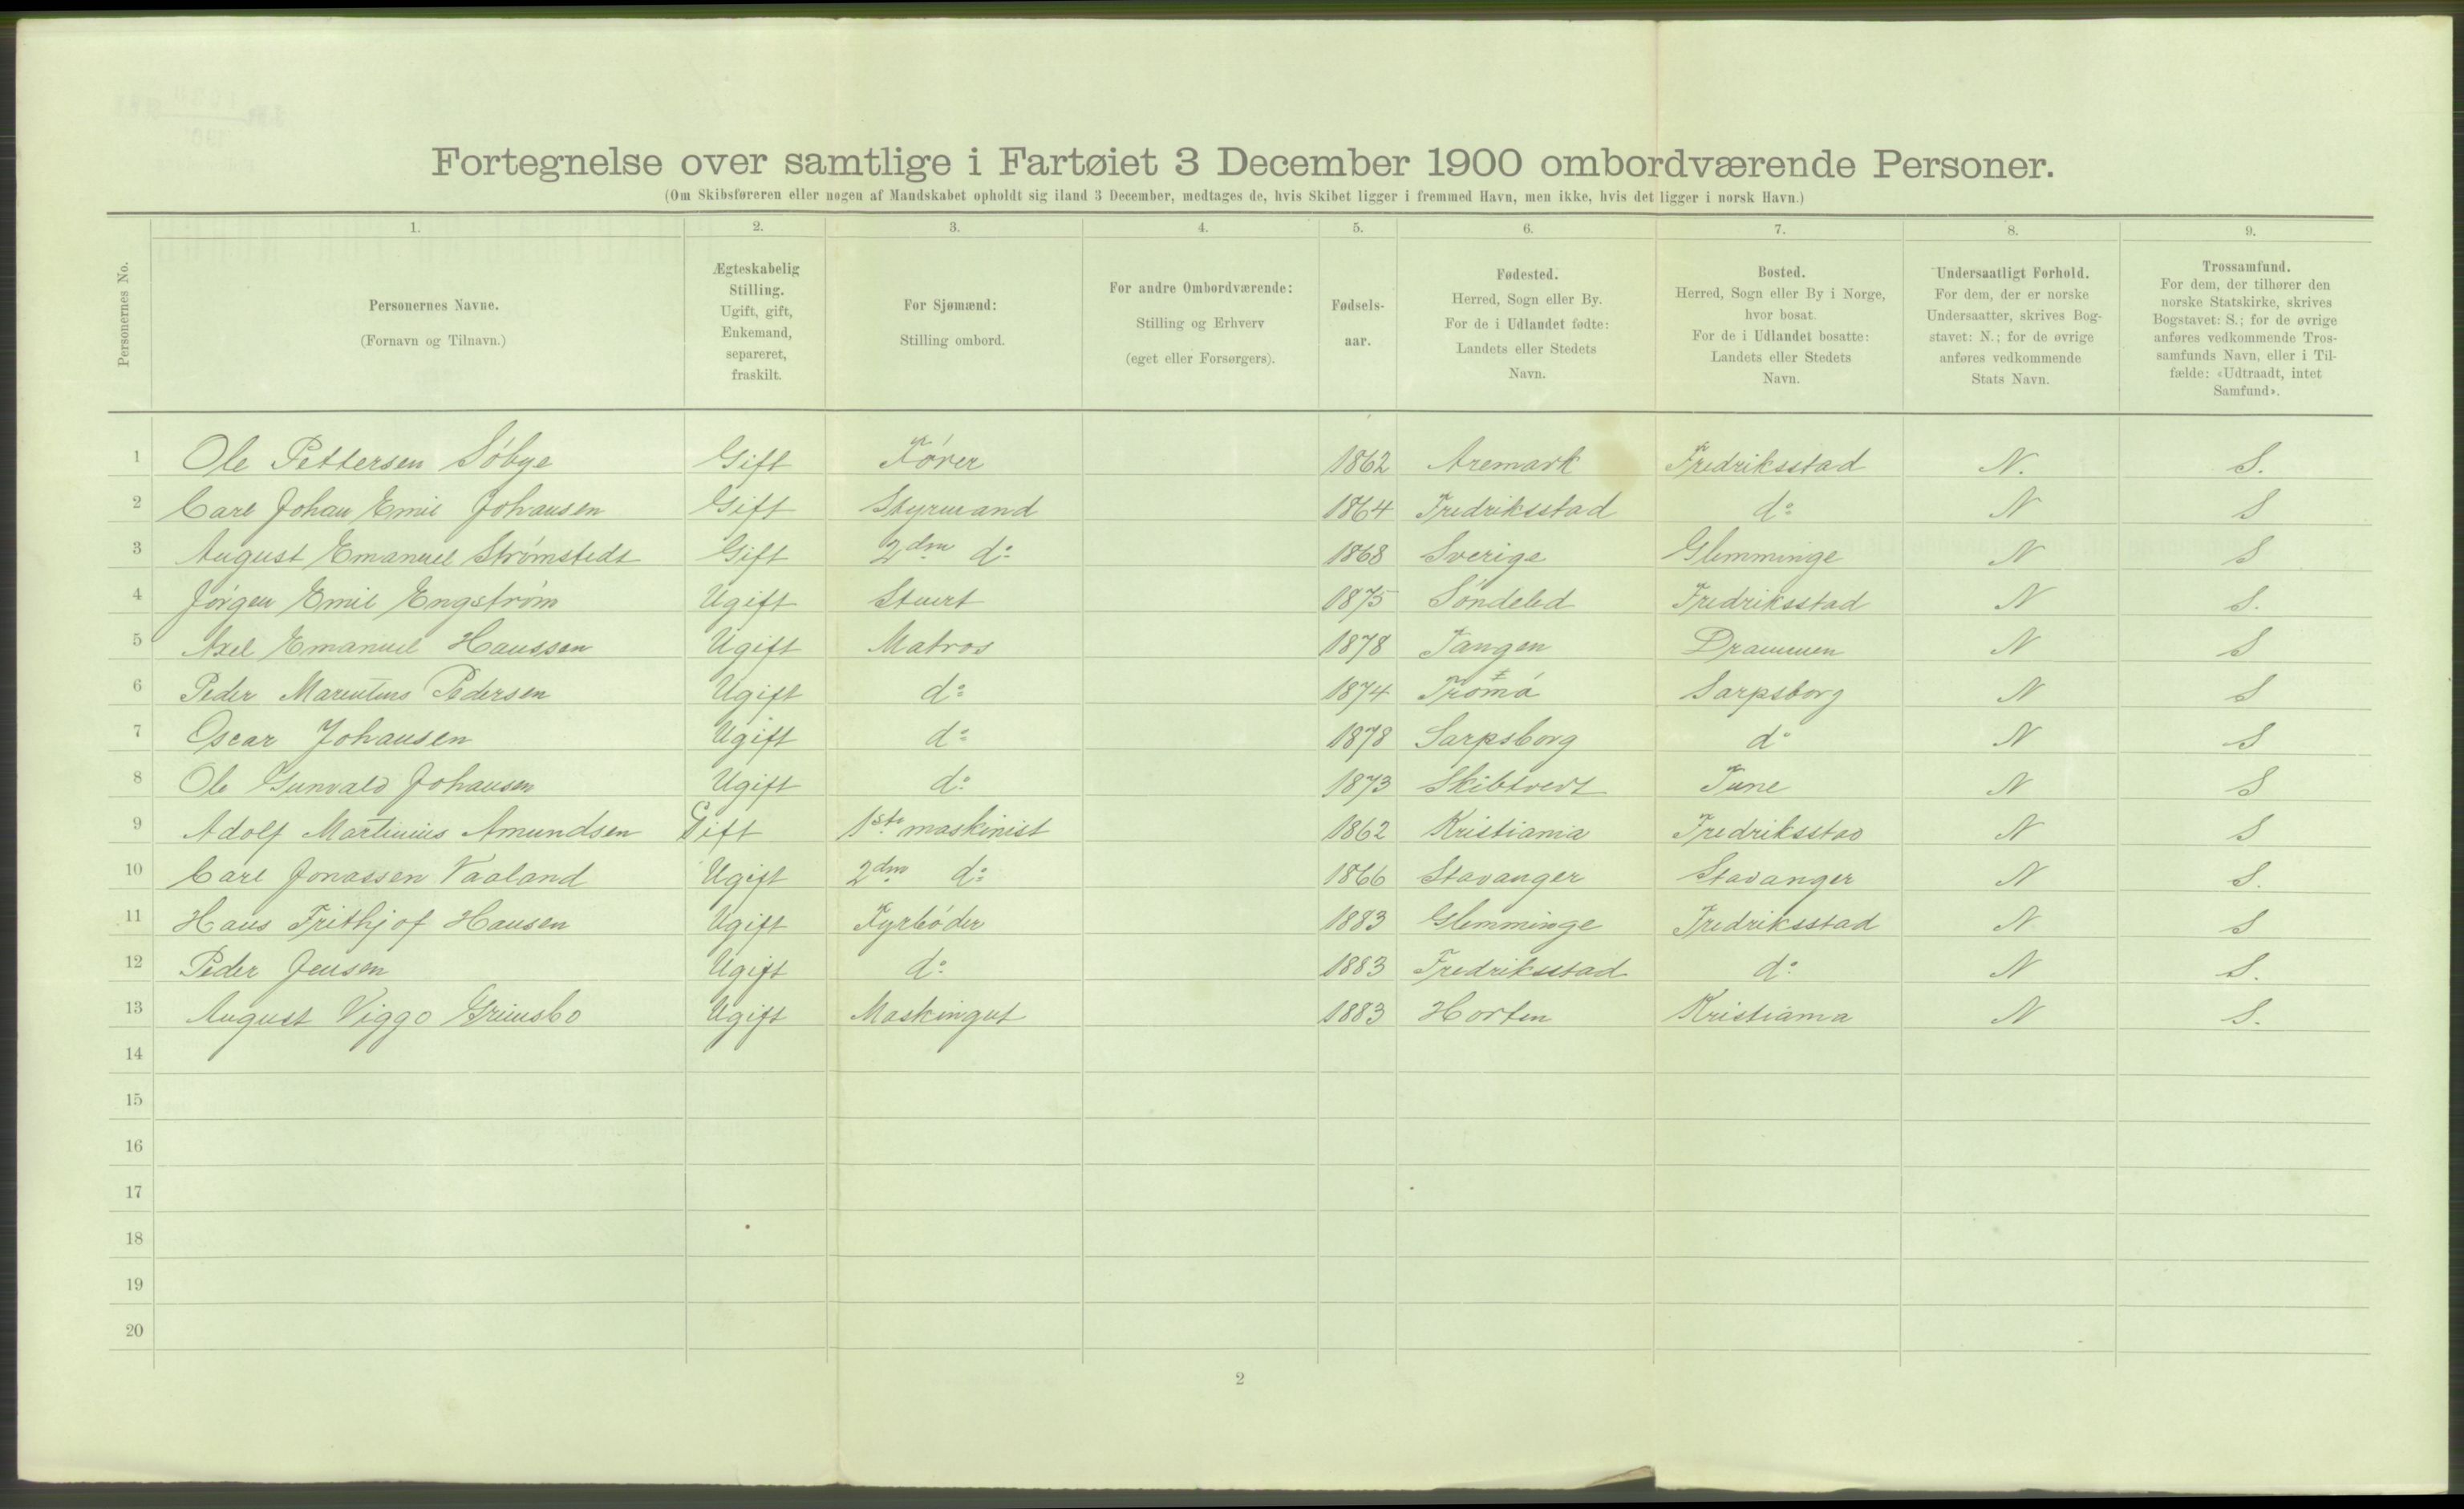 Fortegnelse over samtlige i Fartøiet 3 December 1900 ombordværende Personer.
(Om Skibsføreren eller nogen af Mandskabet opholdt sig iland 3 December, medtages de, hvis Skibet ligger i fremmed Havn, men ikke, hvis det ligger i norsk Havn.)
Personernes No.
1. 2. 3. 4. 5. 6. 7. 8. 9.
Personernes Navne.
(Fornavn og Tilnavn.)
Ægteskabelig
Stilling.
Ugift, gift,
Enkemand,
separeret,
fraskilt.
For Sjømænd:
Stilling ombord.
For andre Ombordværende:
Stilling og Erhverv
(eget eller Forsørgers).
Fødsels-
aar.
Fødested.
Herred, Sogn eller By.
For de i Udlandet fødte:
Landets eller Stedets
Navn.
Bosted.
Herred, Sogn eller By i Norge,
hvor bosat.
For de i Udlandet bosatte:
Landets eller Stedets
Navn.
Undersaatligt Forhold.
For dem, der er norske
Undersaatter, skrives Bog-
stavet: N.; for de øvrige
anføres vedkommende
Stats Navn.
Trossamfund.
For dem, der tilhører den
norske Statskirke, skrives
Bogstavet: S.; for de øvrige
anføres vedkommende Tros-
samfunds Navn, eller i Til-
fælde: «Udtraadt, intet
Samfund».
1 Ole Pettersen Söbye Gift Förer 1862 Aremark Fredriksstad N. S.
2 Carl Johan Emil Johansen Gift Styrmand 1864 Fredriksstad do N S
3 August Emanuel Strömstedt Gift 2den do 1868 Sverige Glemminge N S
4 Jörgen Emil Engström Ugift Stuert 1875 Söndeled Fredriksstad N S.
5 Axel Emanuel Hanssen Ugift Matros 1878 Tangen Drammen N S
6 Peder Pedersen Ugift do 1874 Sarpsborg N S
7 Oscar Johansen Ugift do 1878 Sarpsborg do N S
8 Ole Gunvald Johansen Ugift do 1873 Skibtvedt Tune N S
9 Adolf Martinius Amundsen Gift 1ste maskinist 1862 Kristiania Fredriksstad N S
10 Carl Jonassen Vaaland Ugift 2den do 1866 Stavanger Stavanger N S.
11 Hans Frithjof Hansen Ugift Fyrböder 1883 Glemminge Fredriksstad N S
12 Peder Jensen Ugift do 1883 Fredriksstad do N S.
13 August Viggo Grimsbo Ugift Maskingut 1883 Horten Kristiania N S.
14
15
16
17
18
19
20
2